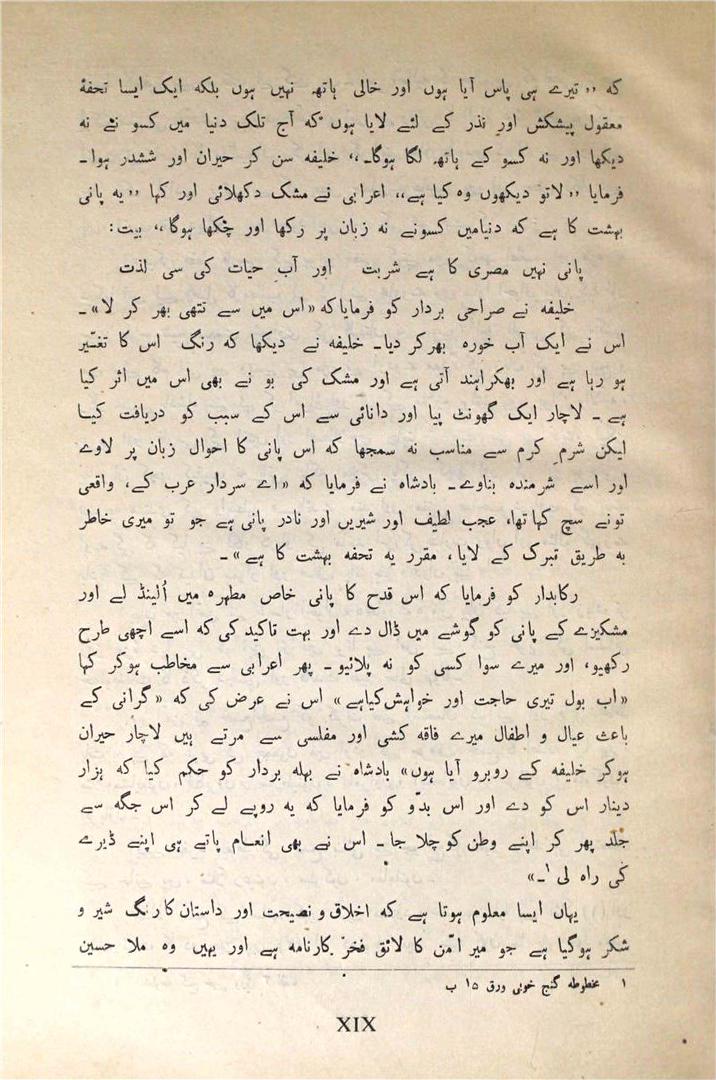 که ,,تیرے ہی پاس آیا ہوں اور خالی ہاتھ نہیں ہوں بلکہ ایک ایسا تحفۂ
معقول پیشکش اور نذر کے لئے لایا ہوں کہ آج تلک دنیا میں کسو نے نہ
دیکھا اور نہ کسو کے ہاتھ لگا ہوگا۔،، خلیفہ سن کر حیران اور ششدر ہوا۔
فرمایا ,,لاتو دیکھوں وہ کیا ہے،، اعرابی نے مشک دکھلائی اور کہا ,,یہ پانی
بہشت کا ہے کہ دنیامیں کسونے نہ زبان پر رکھا اور چکھا ہوگا،، بیت:
پانی نہیں مصری کا ہے شربت اور آبِ حیات کی سی لذت
خلیفہ نے صراحی بردار کو فرمایاکہ «اس میں سے تتھی بھر کر لا»۔
اس نے ایک آب خورہ بھرکر دیا۔ خلیفہ نے دیکھا کہ رنگ اس کا تغیّر
ہو رہا ہے اور بھکراہند آتی ہے اور مشک کی بو نے بھی اس میں اثر کیا
ہے ۔ لاچار ایک گھونٹ پیا اور دانائی سے اس کے سبب کو دریافت کیا
لیکن شرمِ کرم سے مناسب نہ سمجھا کہ اس پانی کا احوال زبان پر لاوے
اور اسے شرمندہ بناوے۔ بادشاہ نے فرمایا کہ «اے سردار عرب کے، واقعی
تونے سچ کہاتھا، عجب لطیف اور شیریں اور نادر پانی ہے جو تو میری خاطر
بہ طریق تبرک کے لایا، مقرر یہ تحفہ بہشت کا ہے»۔
رکابدار کو فرمایا کہ اس قدح کا پانی خاص مطہرہ میں اُلینڈ لے اور
مشکیزے کے پانی کو گوشے میں ڈال دے اور بہت تاکید کی کہ اسے اچھی طرح
رکھیو، اور میرے سوا کسی کو نہ پلائیو۔ پھر اعرابی سے مخاطب ہوکر کہا
«اب بول تیری حاجت اور خواہش کیاہے» اس نے عرض کی کہ «گرانی کے
باعث عیال و اطفال میرے فاقہ کشی اور مفلسی سے مرتے ہیں لاچار حیران
ہوکر خلیفہ کے روبرو آیا ہوں» بادشاہ نے بہلہ بردار کو حکم کیا کہ ہزار
دینار اس کو دے اور اس بدّو کو فرمایا کہ یہ روپے لے کر اس جگہ سے
جلد پھر کر اپنے وطن کو چلا جا۔ اس نے بھی انعام پاتے ہی اپنے ڈیرے
کی راہ لی۱۔»
یہاں ایسا معلوم ہوتا ہے کہ اخلاق و نصیحت اور داستان کا رنگ شیر و
شکر ہوگیا ہے جو میر امّن کا لائق فخر کارنامہ ہے اور یہیں وہ ملا حسین
۱ مخطوطہ گنج خوبی ورق ۱۵ ب
XIX